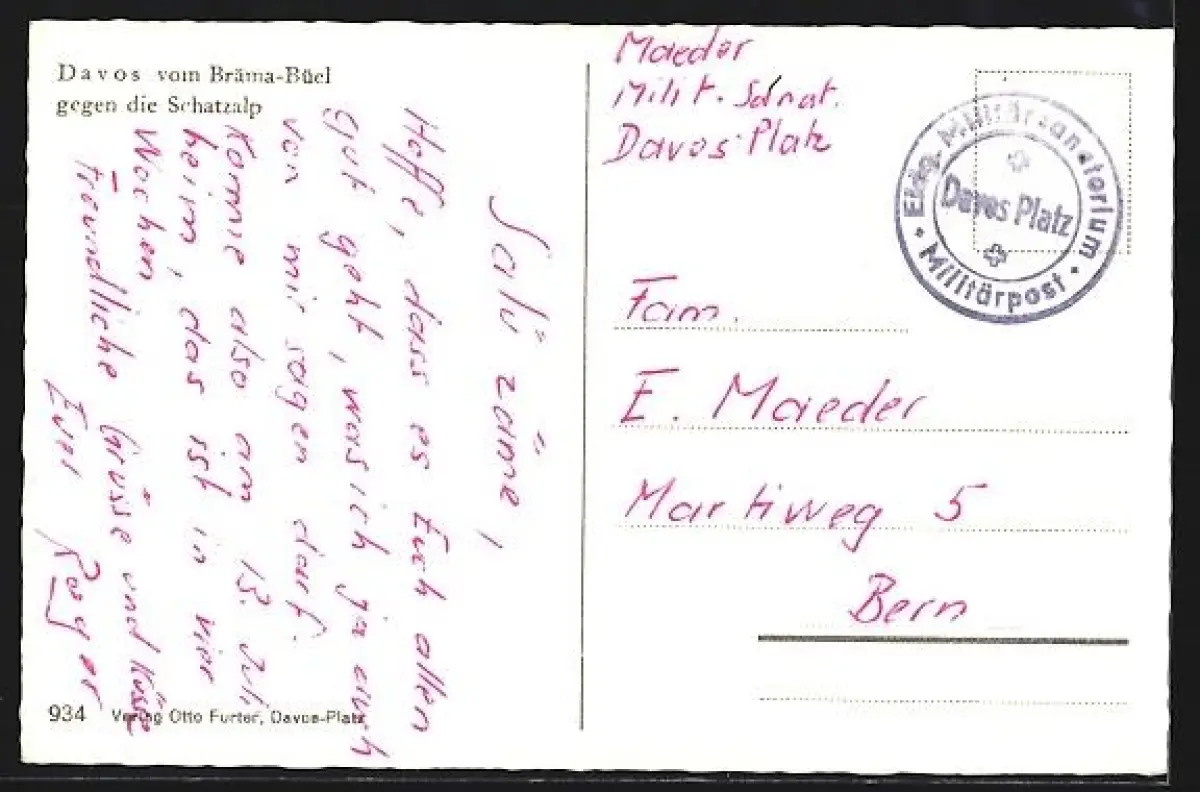 Davos vom Bräma-Büel
gegen die Schatzalp
Sali zäme,
Hoffe, dass es Euch allen
gut geht, was ich ja auch
von mir sagen darf.
Komme also am 13. Juli
heim, das ist in vier
Wochen
Freundliche Grüsse und Küsse
Euer Roger
934 Verlag Otto Furter, Davos-Platz
Maeder
Milit. Sanat.
Davos-Platz
Eidg. Militärsanatorium
Davos Platz
Militärpost
Fam.
E. Maeder
Martiweg 5
Bern